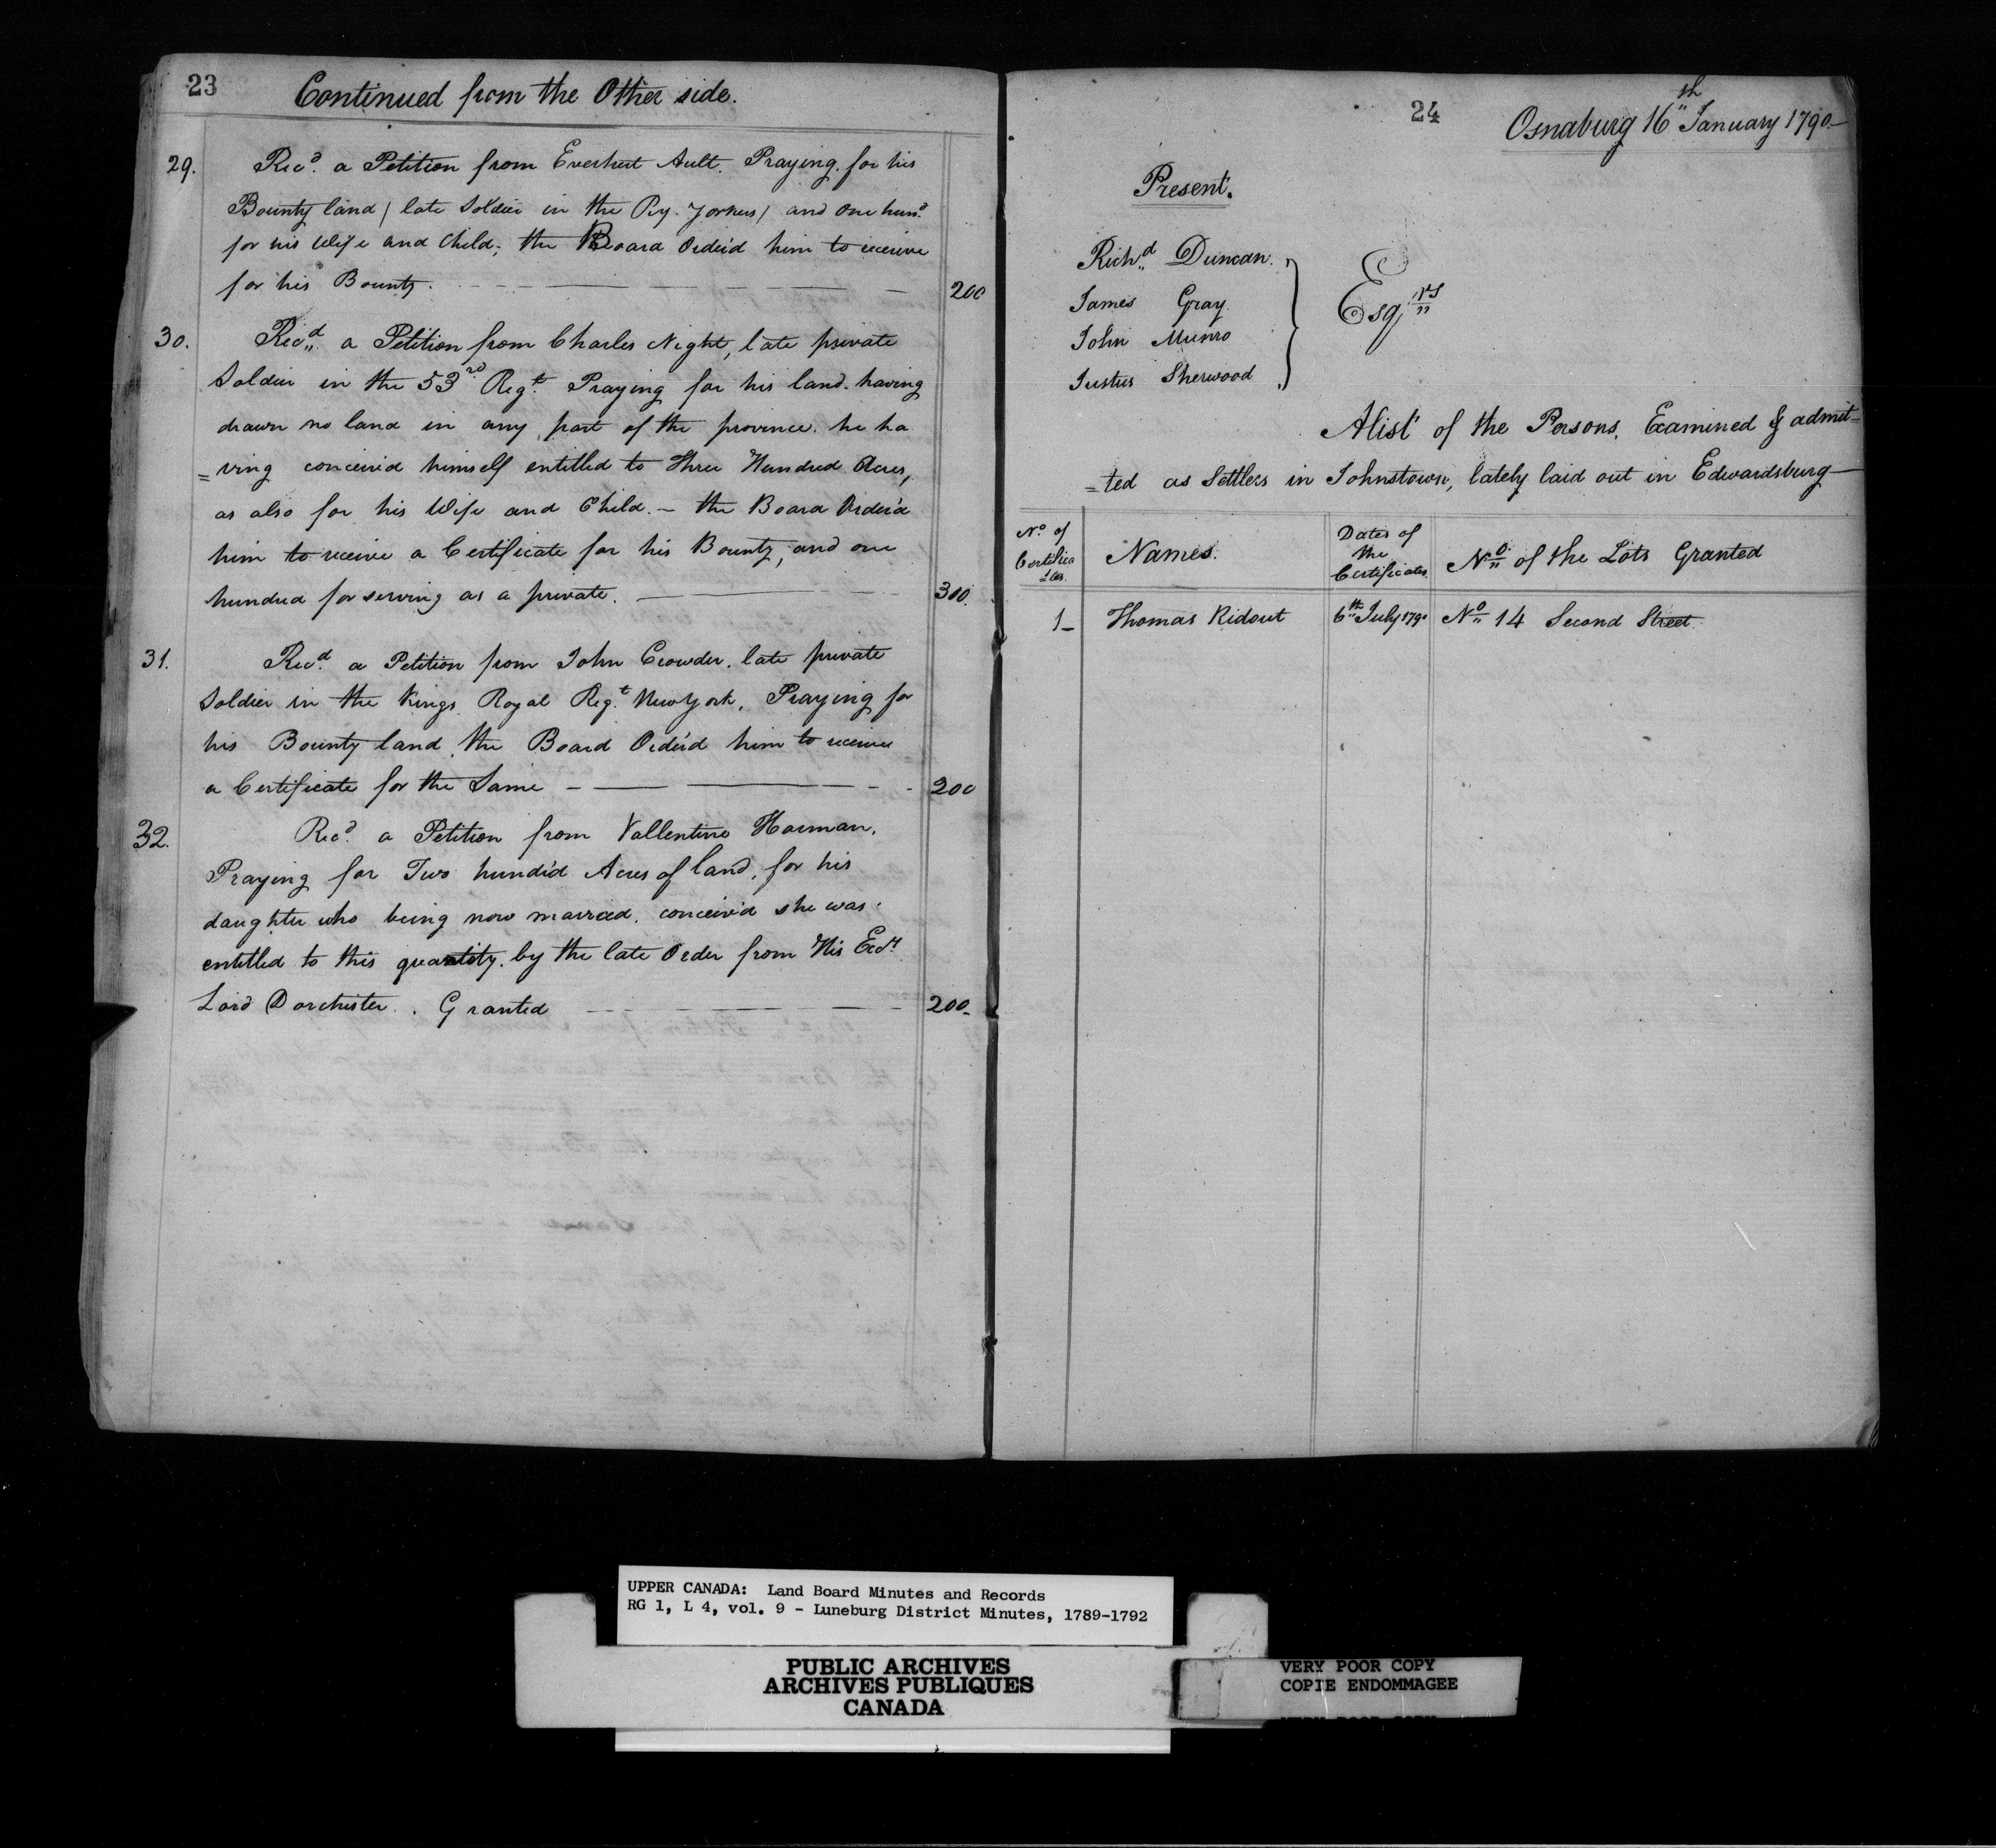 23
Continued from the Other side.
29. Recd. a Petition from Everhert Ault. Praying for his
Bounty land / late Soldier in the Ry. Yorkers / and One hund.
for his Wife and Child; the Board Order'd him to receive
for his Bounty. 200
30. Recd. a Petition from Charles Night, late private
Soldier in the 53rd Regt. Praying for his land. having
drawn no land in any part of the province. he ha
=ving conceiv'd himself entitled to Three Hundred Acres,
as also for his Wife and Child. — the Board Order'd
him to receive a Certificate for his Bounty, and one
hundred for serving as a private. 300.
31. Recd. a Petition from John Crowder. late private
Soldier in the Kings Royal Regt. New York, Praying for
his Bounty land, the Board Order'd him to receive
a Certificate for the Same 200
32. Recd. a Petition from Vallentine Harman.
Praying for Two hund'd Acres of land, for his
daughter who being now married. conceiv'd she was
entitled to this quantity. by the late Order from His Excy.
Lord Dorchester. Granted 200
24
Osnaburg 16th January 1790
Present.
Richd. Duncan.
James Gray
John Munro
Justus Sherwood
Esqrs
A list of the Persons, Examined & admit-
=ted as Settlers in Johnstown, lately laid out in Edwardsburg
No. of Certifica=tes. Names. Dates of the Certificates No. of the Lots Granted
1 Thomas Ridout 6th July 1790 No. 14 Second Street
UPPER CANADA: Land Board Minutes and Records
RG 1, L 4, vol. 9 - Luneburg District Minutes, 1789-1792
PUBLIC ARCHIVES
ARCHIVES PUBLIQUES
CANADA
VERY POOR COPY
COPIE ENDOMMAGEE